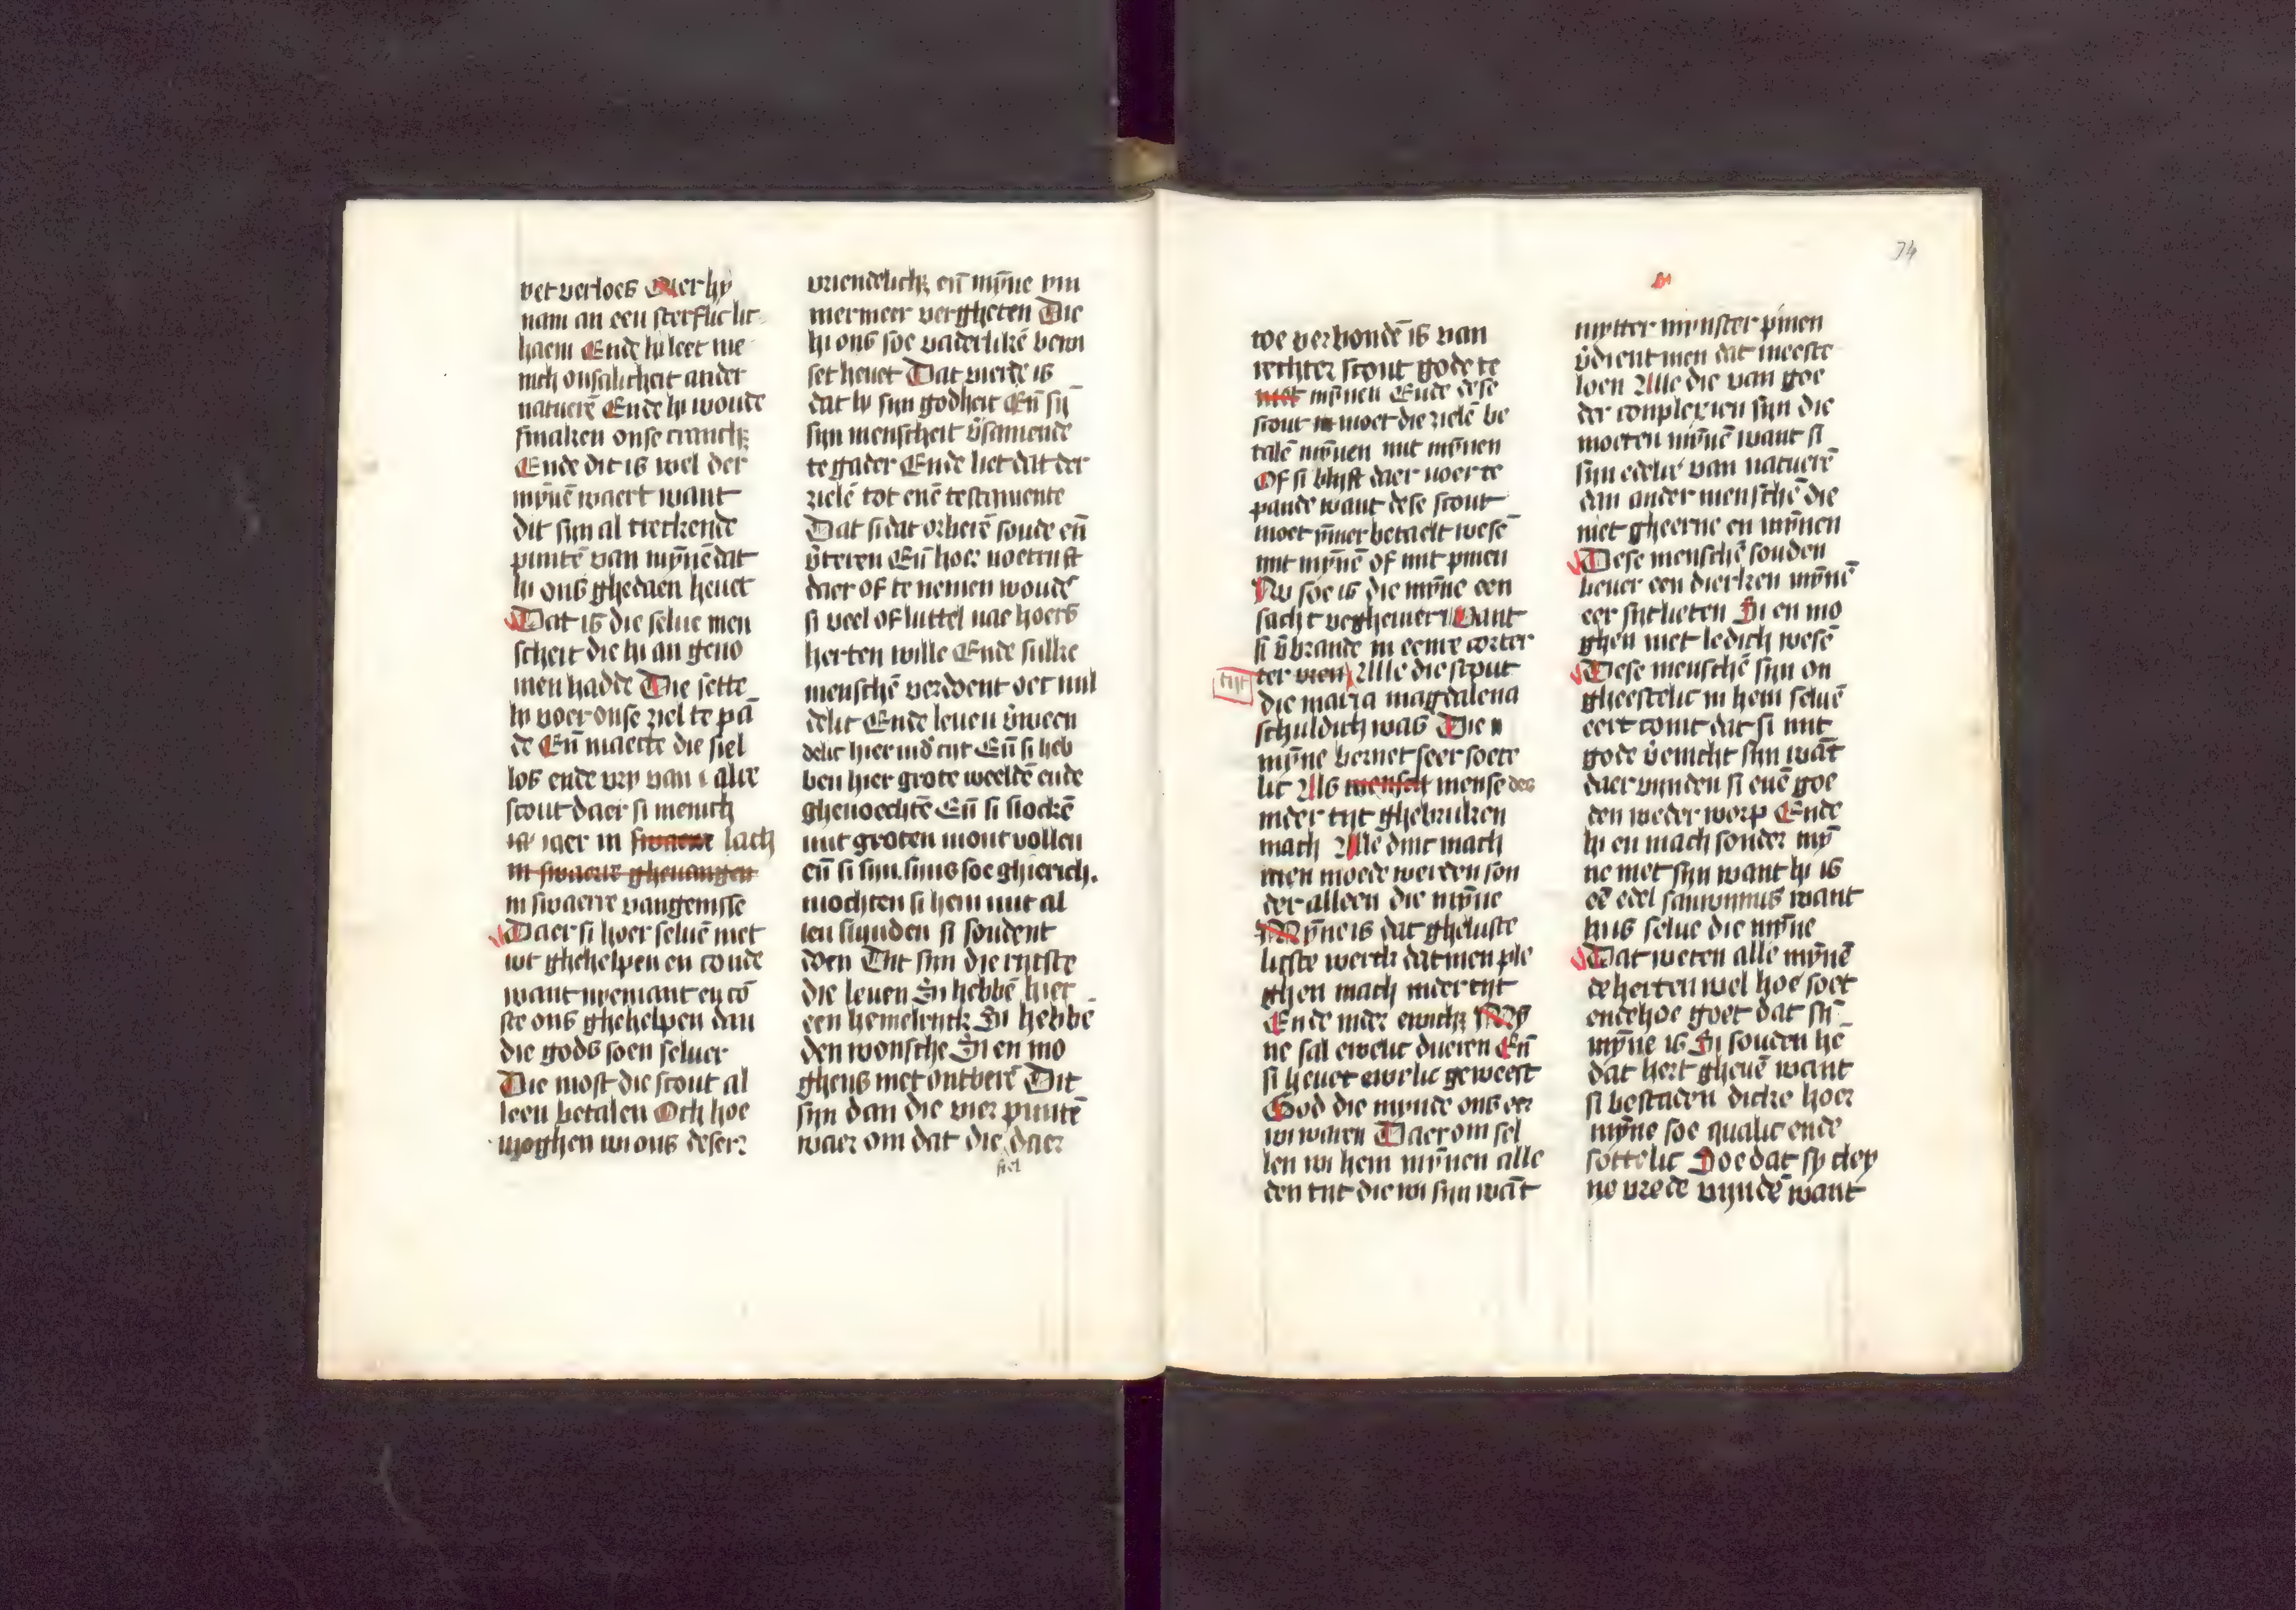 vet verloes Ouer hy
nam an een sterflic lic
haem Ende hi leet me
nich onsalicheit ander
naturē Ende hi woude
smaken onse cranch;
Ende dit is wel der
mȳnē waert want
dit sijn al treckende
puntē van mȳnē dat
hi ons ghedaen heuet
Dat is die selue men
scheit die hi an geno
men hadde Die sette
hi voer onse ziel te pā
de Eñ maecte die siel
los ende vry van alre
scout daer si menich
iaer in swaerre lach
in swaerre gheuangen
in swaerre vangenisse
Daer si hoer seluē niet
wt ghehelpen en coude
want nyemant en cō
ste ons ghehelpen dan
die gods soen seluer
Die most die scout al
leen betalen Och hoe
moghen wi ons deser
vriendelich; eñ mȳne ym
mermeer vergheten Die
hi ons soe vaderlikē bewi
set heuet Dat vierde is
dat hi sijn godheit Eñ sij
sijn menscheit v̄samende
te gader Ende liet dat der
zielē tot enē testamente
Dat si dat orberē soude eñ
v̄teren Eñ hoer noetruft
daer of te nemen woude
si veel of luttel nae hoers
herten wille Ende sulke
menschē verdoent oec mil
delic Ende leuen v̄ween
delic hier in d' tijt Eñ si heb
ben hier grote weeldē ende
ghenoechtē Eñ si slockē
mit groten mont vollen
eñ si sijn sijns soe ghierich.
mochten si hem mit al
len slynden si soudent
doen Dit sijn die rijcste
die leuen Si hebbē hier
een hemelrijck Si hebbē
den wonsche Si en mo
ghens niet ontberē Dit
sijn dan die vier puntē
waer om dat die daer
siel
74
toe verbondē is van
rechter scout gode te
met mȳnen Ende dese
scout moet die zielē be
talē mȳnen mit mȳnen
Of si blijft daer voer te
pande want dese scout
moet ȳmmer betaelt wesē
mit mȳnē of mit pinen
Nv soe is die mȳne een
sacht vegheuier Want
si v̄brande in eenre corter
tijt
ter vren Alle die scout
die maria magdalena
schuldich was Die
mȳne bernet seer soete
lic Als mensch mense des
in der tijt ghebruken
mach Alle dinc mach
men moede werden son
der alleen die mȳne
Mȳne is dat gheluste
licste werck dat men ple
ghen mach in der tijt
Ende in der ewich; Mȳ
ne sal ewelic dueren Eñ
si heuet ewelic geweest
God die mynde ons eer
wi waren Daer om sel
len wi hem mȳnen alle
den tijt die wi sijn wāt
mitter mynster pinen
v̄dient men dat meeste
loen Alle die van goe
der conplexien sijn die
moeten mȳnē want si
sijn edelre van naturē
dan ander menschē die
niet gheerne en mȳnen
Dese menschē souden
lieuer een dierken mȳnē
eer sijt lieten Si en mo
ghen niet ledich wesē
Dese menschē sijn on
gheestelic in hem seluē
eert comt dat si mit
gode v̄enicht sijn wāt
daer vynden si enē goe
den weder worp Ende
hi en mach sonder mȳ
ne niet sijn want hi is
eē edel sanwynnus want
hijs selue die mȳne
Dat weten alle mȳnē
de herten wel hoe soet
ende hoe goet dat sij
mȳne is Si souden hē
dat hert gheuē want
si bestaden dicke hoer
mȳne soe qualic ende
sottelic Soe dat sy cley
ne vrede vyndē want